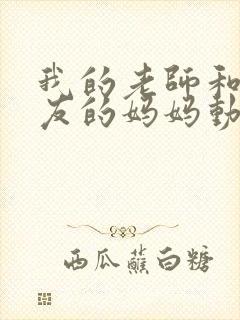 我的老師和
友的妈妈動
西瓜蘸白糖